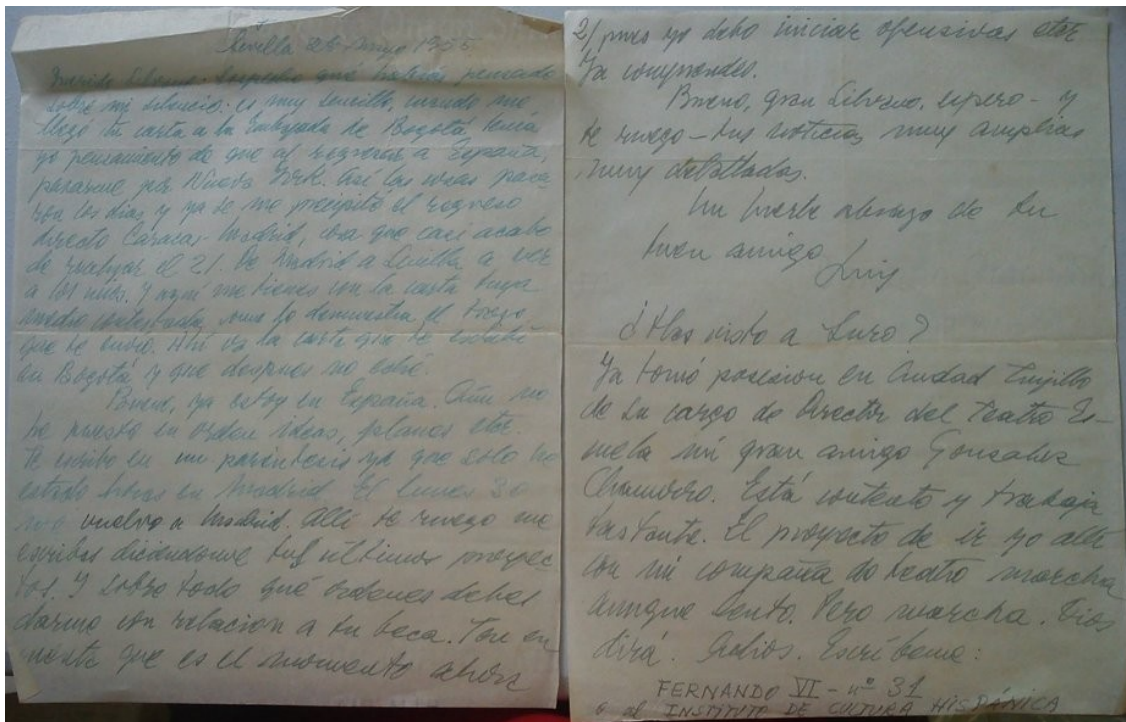 Sevilla 26 Mayo 1955
Querido Liborno: Sospecho qué habrás pensado
sobre mi silencio: es muy sencillo, cuando me
llegó tu carta a la Embajada de Bogotá tenía
yo pensamiento de que al regresar a España,
pasarme por Nueva York. Así las cosas pasa-
ron los dias y ya se me precipitó el regreso
directo Caracas-Madrid, cosa que casi acabo
de realizar el 21. De Madrid a Sevilla a ver
a los míos. Y aquí me tienes con la carta tuya
medio contestada, como lo demuestra el trozo
que te envio. Ahí va la carta que te escribí
en Bogotá y que despues no eché.
Bueno, ya estoy en España. Aún no
he puesto en orden ideas, planes etcr.
Te escribo en un paréntesis ya que solo he
estado horas en Madrid. El lunes 30
vuelvo a Madrid. Allí te ruego me
escribas diciendome tus últimos proyec-
tos. Y sobre todo qué órdenes debes
darme con relacion a tu beca. Ten en
cuenta que es el momento ahora
2/ pues yo debo iniciar ofensivas etcr
Ya comprendes.
Bueno, gran espero - y
te ruego - tus noticias muy amplias
muy detalladas.
Un fuerte abrazo de tu
buen amigo
Luis
¿Has visto a
Ya tomó posesion en Ciudad Trujillo
de su cargo de Director del Teatro Es-
cuela mi gran amigo Gonzalez
Chamorro. Está contento y trabaja
bastante. El proyecto de ir yo allí
con mi compañia de teatro marcha
aunque lento. Pero marcha. Dios
dirá. Adios. Escríbeme:
FERNANDO VI - nº 31
o al INSTITUTO DE CULTURA HISPÁNICA